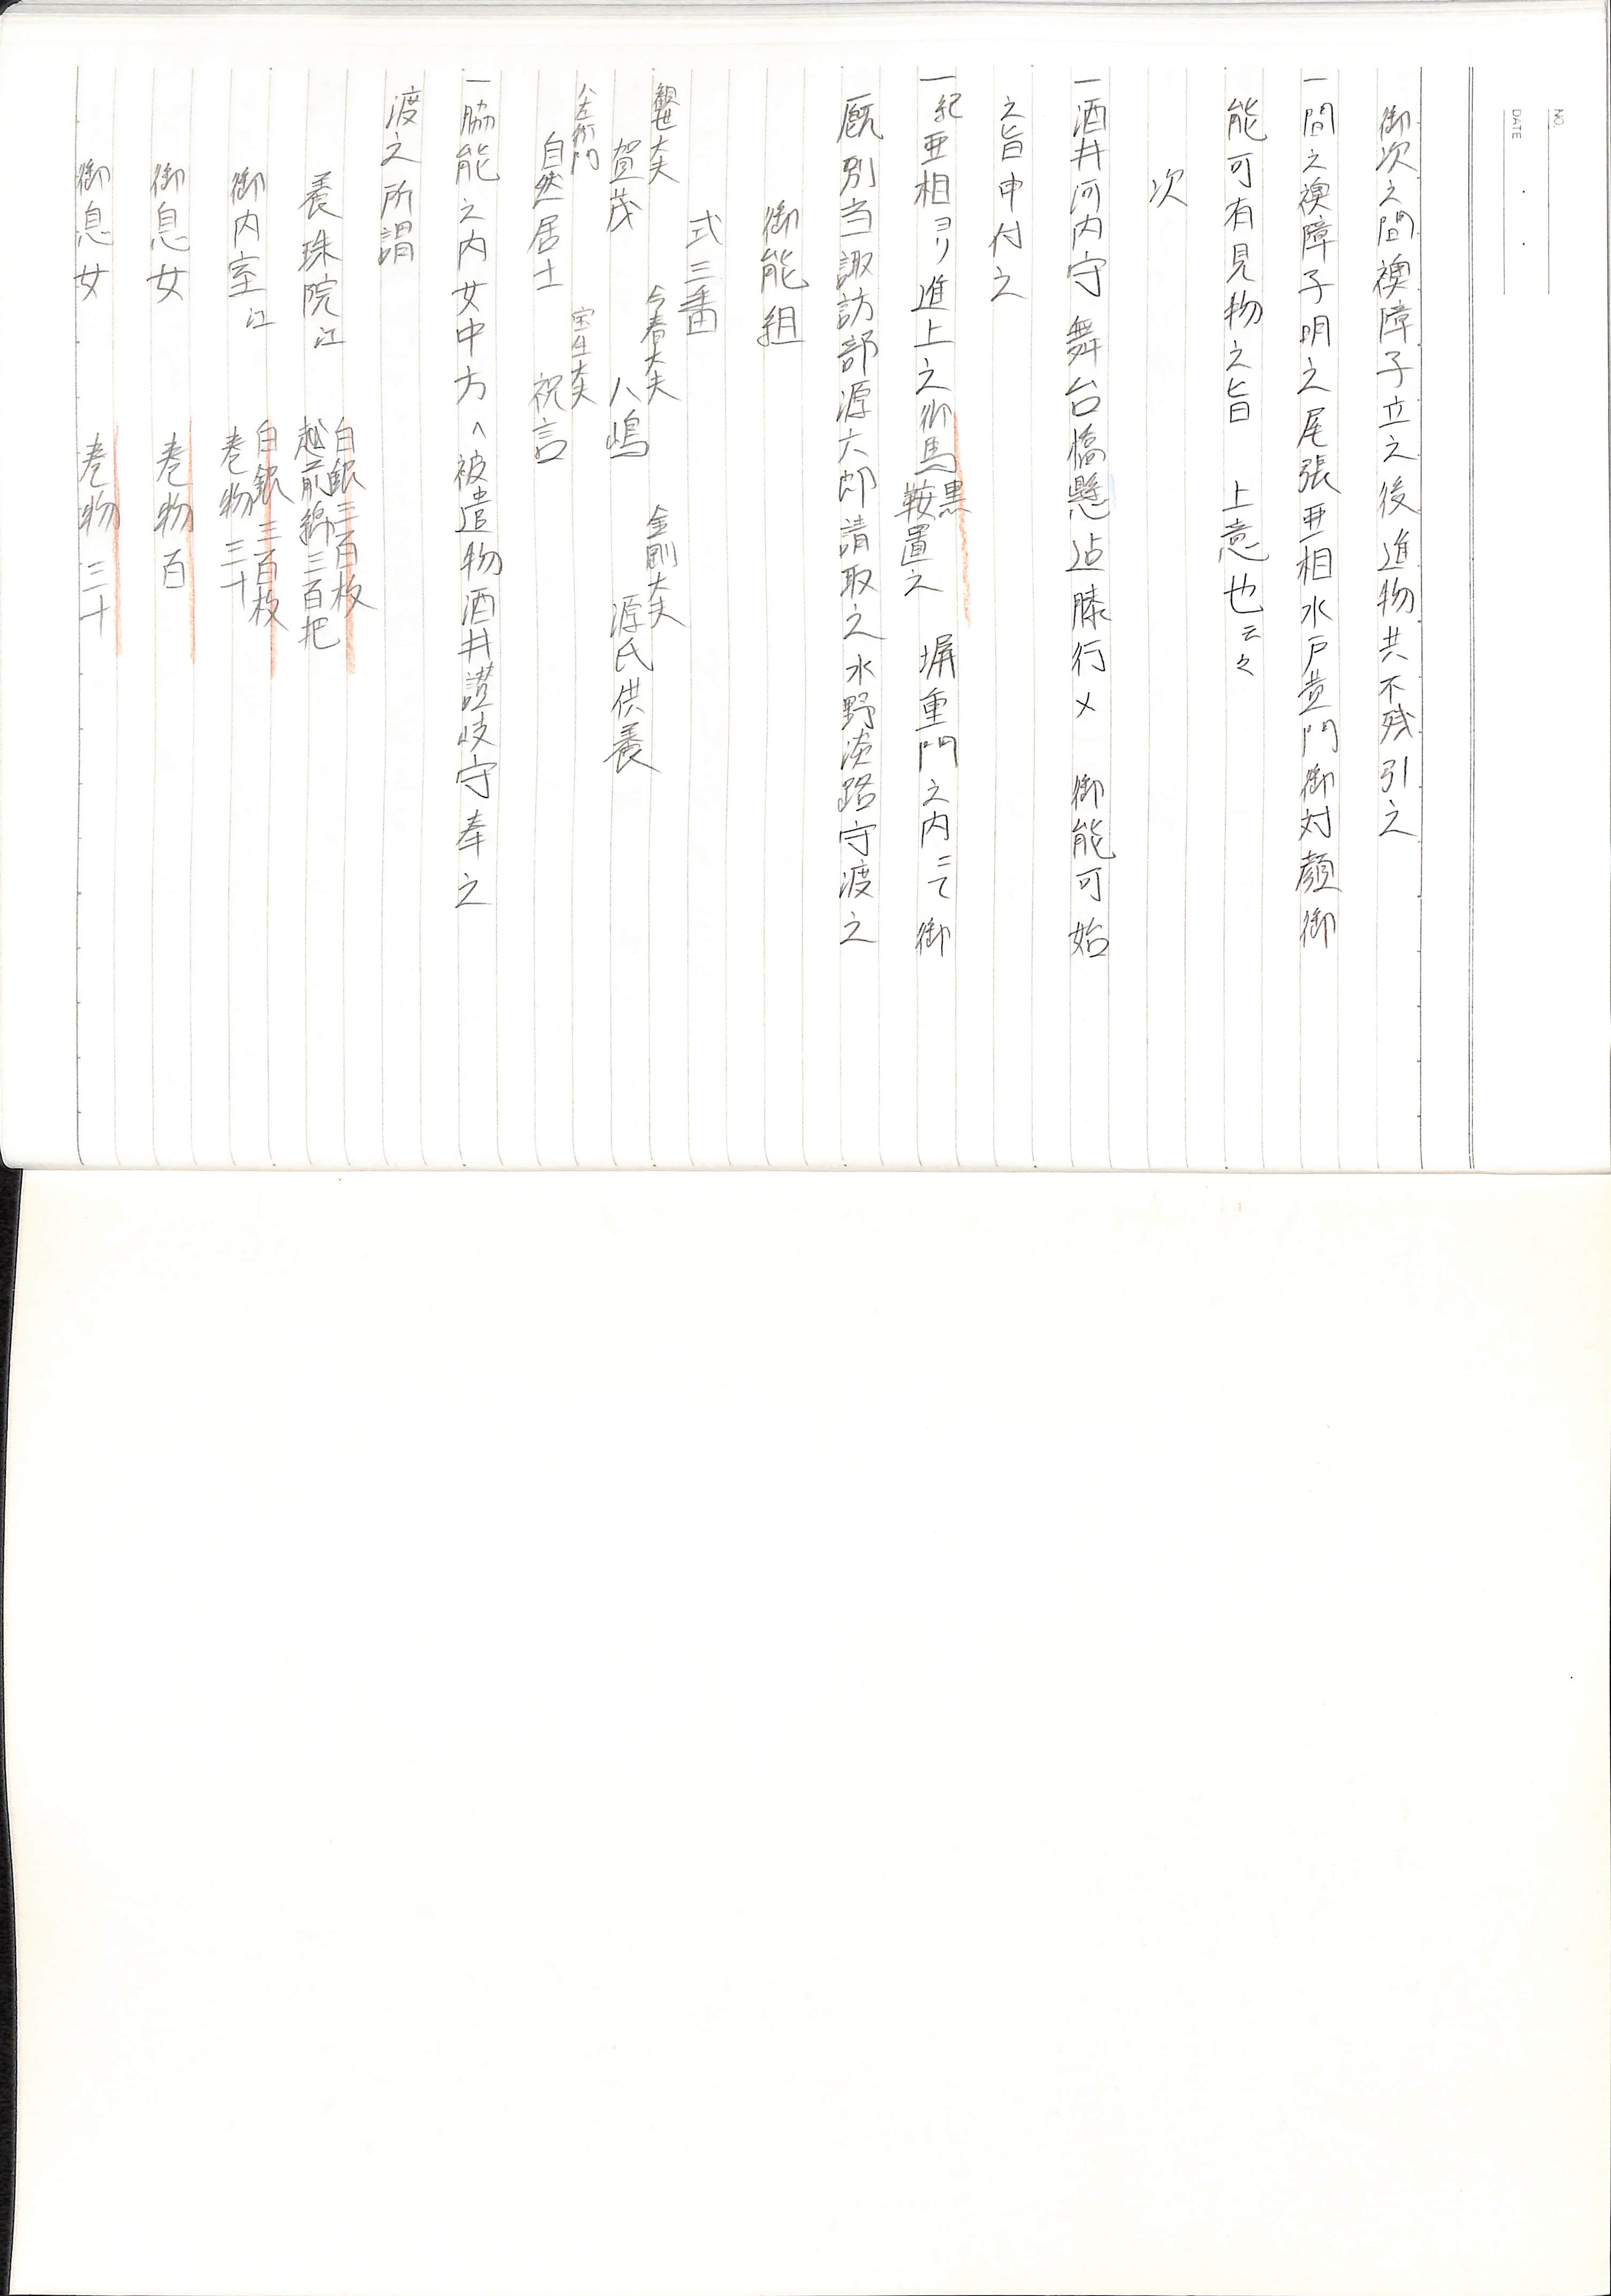 NO.
DATE
御次之間襖障子立之後進物共不残引之
一間之襖障子明之尾張亜相水戸黄門御対顔御
能可有見物之旨 上意也云々
次
一酒井河内守舞台橋懸迠膝行〆 御能可始
之旨申付之
一紀亜相ヨリ進上之御馬黒鞍置之 塀重門之内ニて御
厩別当諏訪部源六郎請取之水野淡路守渡之
御能組
式三番
観世大夫 今春大夫 金剛大夫
賀茂 八嶋 源氏供養
八左衛門 宝生大夫
自然居士 祝言
一脇能之内女中方へ被遣物酒井讃岐守奉之
渡之所謂
養珠院江 白銀三百枚
越前綿三百把
御内室江 白銀三百枚
巻物三十
御息女 巻物百
御息女 巻物三十